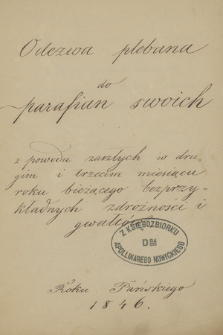 Odezwa plebana
do
parafian swoich
z powodu zaszłych w dru-
gim i trzecim miesiącu
roku bieżącego bezprzy-
kładnych zdrożności i
gwałtów
Z KSIĘGOZBIORKU
DM
APOLLINAREGO NOWICKIEGO
Roku Pańskiego
1846.